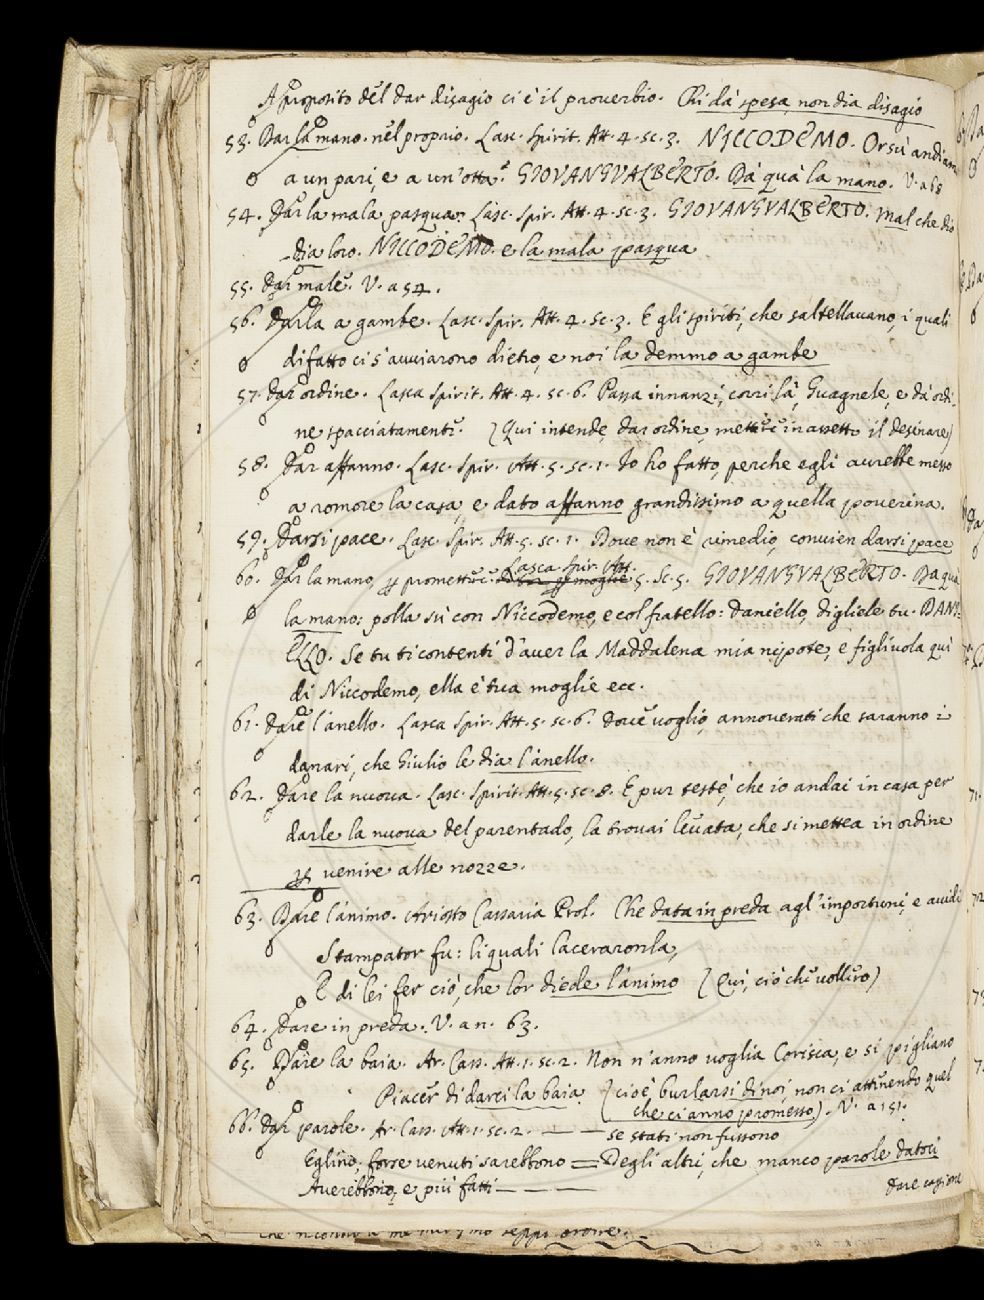 A proposito del dar disagio ci è il prouerbio. Chi dà spesa non dia disagio
53. Dar la mano. nel proprio. Lasc. Spirit. Att. 4. sc. 3. NICCODEMO. Orsù andian
a un pari, e a un'otta. GIOVANGVALBERTO. Dà quà la mano. V. a 68
54. Dar la mala pasqua. Lasc. Spir. Att. 4. sc. 3. GIOVANGVALBERTO. Mal che dio
dia loro. NICCODEMO. e la mala pasqua
55. Dar male. V. a 54.
56. Darla a gambe. Lasc. Spir. Att. 4. sc. 3. E gli spiriti, che saltellauano, i quali
difatto ci s'auuiarono dietro, e noi la demmo a gambe
57. Dar ordine. Lasca Spirit. Att. 4. sc. 6. Passa innanzi, corri là, Guagnele, e dà ordi-
ne spacciatamente. (Qui intende dar ordine, mettere in assetto il desinare)
58. Dar affanno. Lasc. Spir. Att. 5. sc. 1. Io ho fatto, perche egli aurebbe messo
a romore la casa, e dato affanno grandissimo a quella pouerina.
59. Darsi pace. Lasc. Spir. Att. 5. sc. 1. Doue non è rimedio, conuien darsi pace
60. Dar la mano, p promettere. Lasca Spir. Att. 5. Sc. 5. GIOVANGVALBERTO. Da quà
la mano: polla sù con Niccodemo, e col fratello: Daniello, digliele tu. DANI-
ELLO. Se tu ti contenti d'auer la Maddalena mia nipote, e figliuola quì
di Niccodemo, ella è tua moglie ecc.
61. Dare l'anello. Lasca Spir. Att. 5. sc. 6. Doue voglio, annouerati che saranno i
danari, che Giulio le dia l'anello.
62. Dare la nuoua. Lasc. Spirit. Att. 5. sc. 8. E pur testè, che io andai in casa per
darle la nuoua del parentado, la trouai leuata, che si mettea in ordine
p venire alle nozze.
63. Dare l'animo. Ariosto Cassaria Prol. Che data in preda agl'importuni, e auidi
Stampator fu: li quali laceraronla,
E di lei fer ciò, che lor diede l'animo (Qui, ciò che uollero)
64. Dare in preda. V. a n. 63.
65. Dare la baia. Ar. Cass. Att. 1. sc. 2. Non n'anno uoglia Corisca, e si pigliano
Piacer di darci la baia. (cioè, burlarsi di noi, non ci attenendo quel
che ci anno promesso). V. a 151.
66. Dar parole. Ar. Cass. Att. 1. sc. 2. — — se stati non fussono
Eglino; forse uenuti sarebbono = Degli altri, che manco parole datoci
Auerebbono, e più fatti — — —
dare cagione